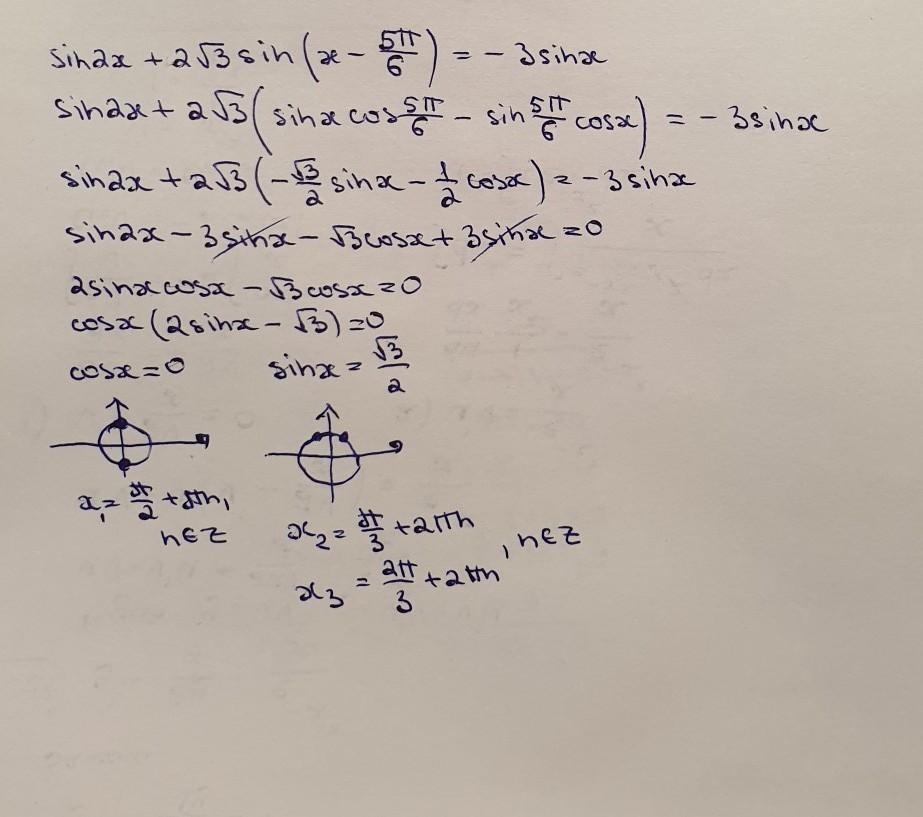 sin2x + 2√3 sin(x − 5π/6) = − 3sinx
sin2x + 2√3(sinx cos 5π/6 − sin 5π/6 cosx) = − 3sinx
sin2x + 2√3(−√3/2 sinx − 1/2 cosx) = −3sinx
sin2x − 3sinx − √3cosx + 3sinx = 0
2sinx cosx − √3cosx = 0
cosx(2sinx − √3) = 0
cosx = 0 sinx = √3/2
x₁ = π/2 + πn,
n∈Z
x₂ = π/3 + 2πn
, n∈Z
x₃ = 2π/3 + 2πn